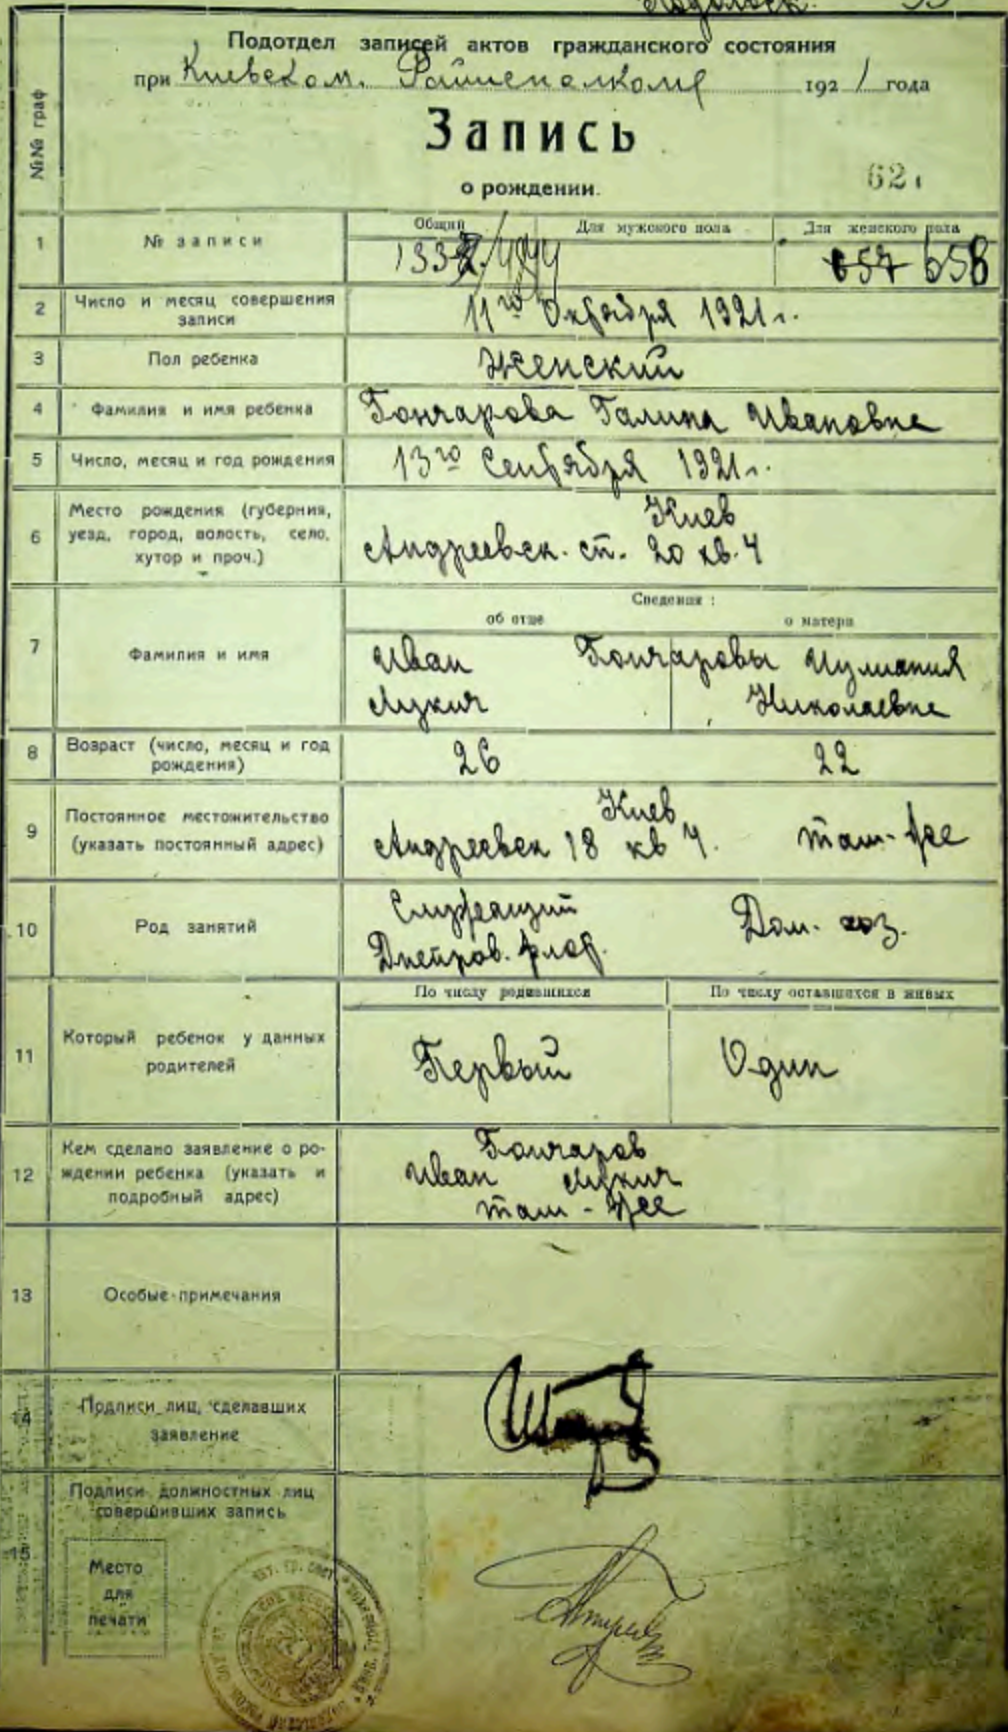 Подотдел записей актов гражданского состояния
при Киевском. Райисполкоме 1921 года
№№ граф
Запись
о рождении.
621
Общий Для мужского пола Для женского пола
1 № записи 657 658
2 Число и месяц совершения
записи
11го Октября 1921 г.
3 Пол ребенка Женский
4 Фамилия и имя ребенка Гончарова Галина Ивановна
5 Число, месяц и год рождения 13го Сентября 1921 г.
6 Место рождения (губерния,
уезд, город, волость, село,
хутор и проч.)
Киев
Андреевск. сп. 20 кв. 4
Сведения:
об отце о матери
7 Фамилия и имя
Иван Гончаровы Иулиания
Лукич Николаевна
8 Возраст (число, месяц и год
рождения)
26 22
9 Постоянное местожительство
(указать постоянный адрес)
Киев
Андреевск 18 кв 4. там-же
10 Род занятий
Служащий Дом. хоз.
Днепров. флот.
По числу родившихся По числу оставшихся в живых
11 Который ребенок у данных
родителей
Первый Один
12 Кем сделано заявление о ро-
ждении ребенка (указать и
подробный адрес)
Гончаров
Иван Лукич
там-же
13 Особые примечания
14 Подписи лиц, сделавших
заявление
15 Подписи должностных лиц
совершивших запись
Место
для
печати